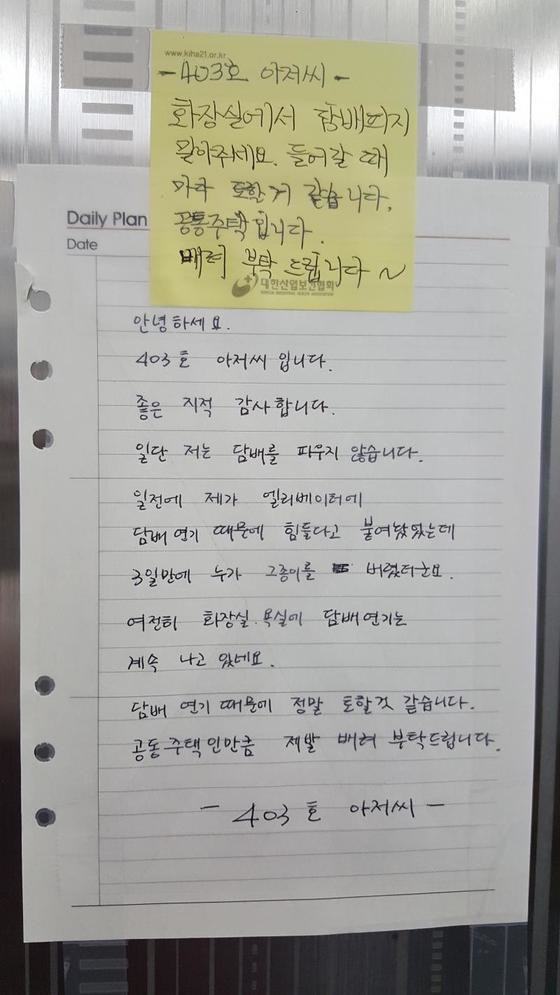 www.kiha21.or.kr
-403호 아저씨-
화장실에서 담배피지
말아주세요. 들어갈 때
마다 토할거 같습니다.
공통주택입니다.
배려 부탁 드립니다~
대한산업보건협회
Daily Plan
Date
안녕하세요.
403호 아저씨 입니다.
좋은 지적 감사합니다.
일단 저는 담배를 피우지 않습니다.
일전에 제가 엘리베이터에
담배 연기 때문에 힘들다고 붙여놨었는데
3일만에 누가 그종이를 버렸더군요.
여전히 화장실.욕실에 담배연기는
계속 나고 있네요.
담배 연기 때문에 정말 토할것 같습니다.
공동주택인만큼 제발 배려 부탁드립니다.
- 403호 아저씨 -